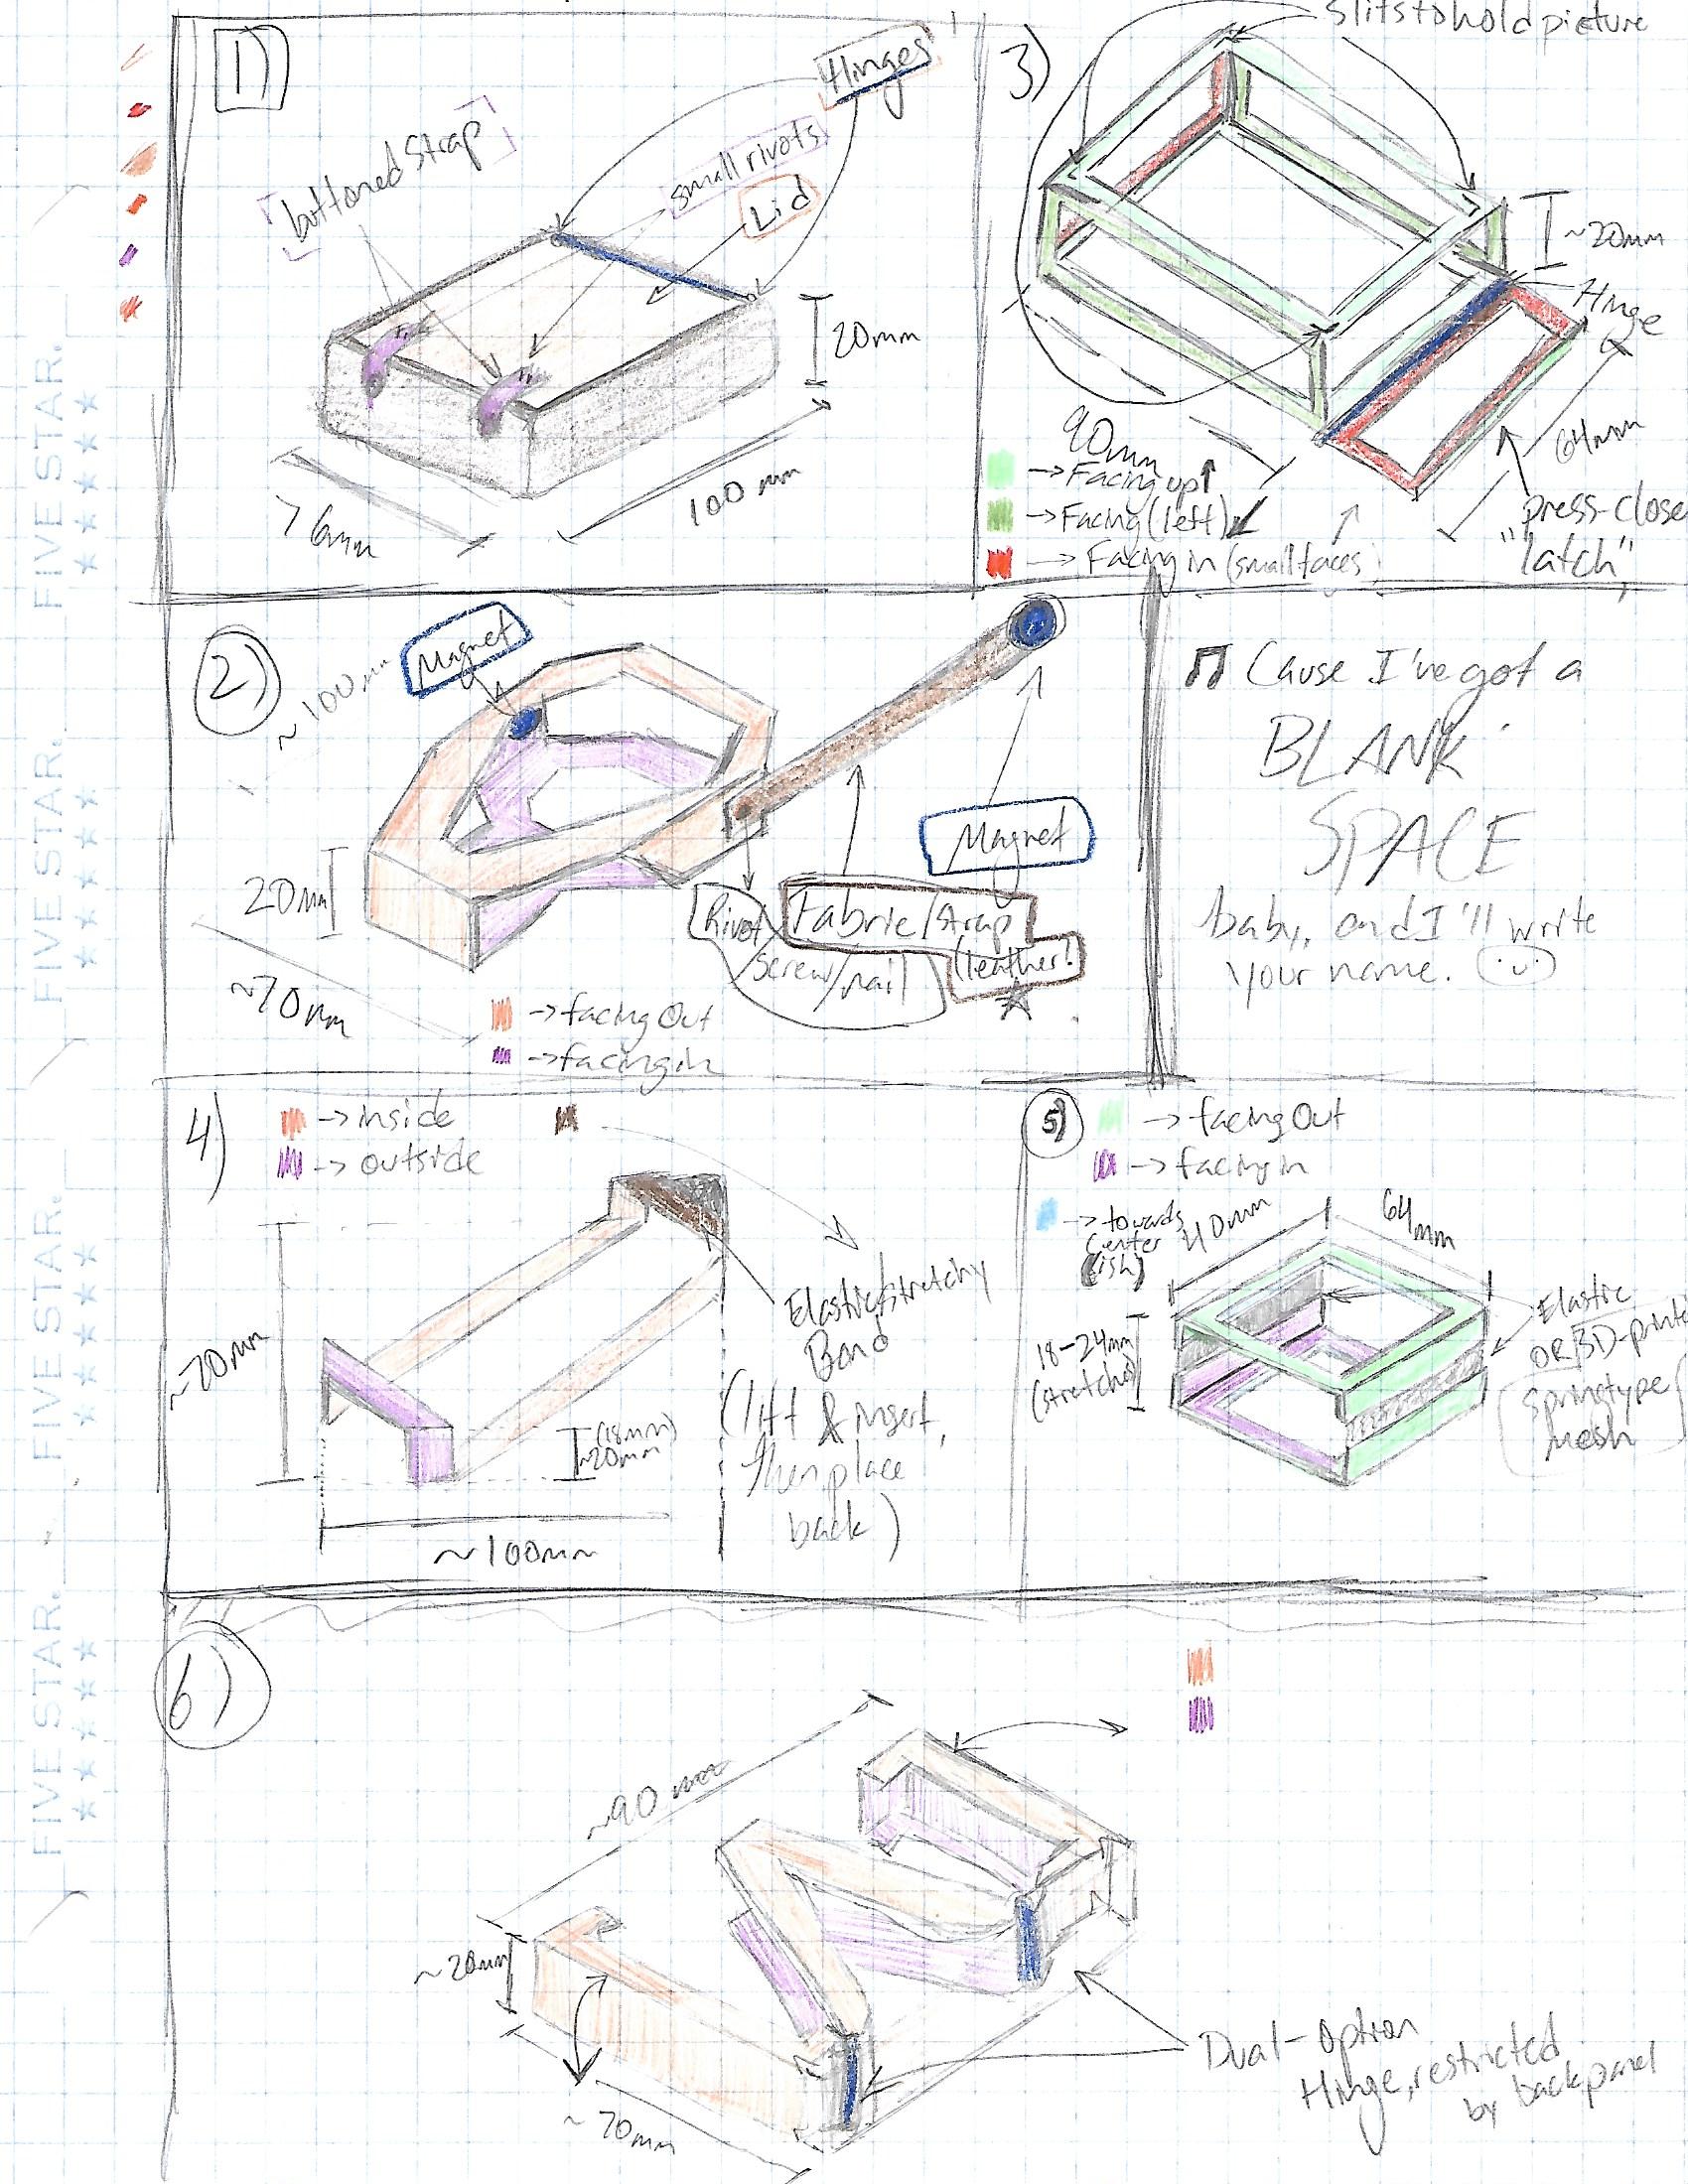 1)
Hinges
buttoned Strap
small rivots
Lid
20mm
76mm
100 mm
3)
slits to hold picture
~20mm
Hinge
64mm
90mm
→ Facing up↑
→ Facing (left)
→ Facing in (small faces
press-close
"latch"
2)
~100mm
Magnet
20mm
~70mm
Magnet
Rivot/
screw/nail
Fabric/strap
(leather?)
→ facing Out
→ facing in
♫ Cause I've got a
BLANK
SPACE
baby, and I'll write
your name.
4)
→ inside
→ outside
~70mm
(18mm)
~20mm
~100mm
Elastic/stretchy
Band
(lift & insert,
then place
back)
5)
→ facing Out
→ facing in
→ towards
center
(ish)
64mm
18-24mm
(stretched)
Elastic
OR 3D-printed
Springtype
mesh
6)
~90 mm
~20mm
~70mm
Dual-Option
Hinge, restricted
by backpanel
FIVE STAR.
FIVE STAR.
FIVE STAR.
FIVE STAR.